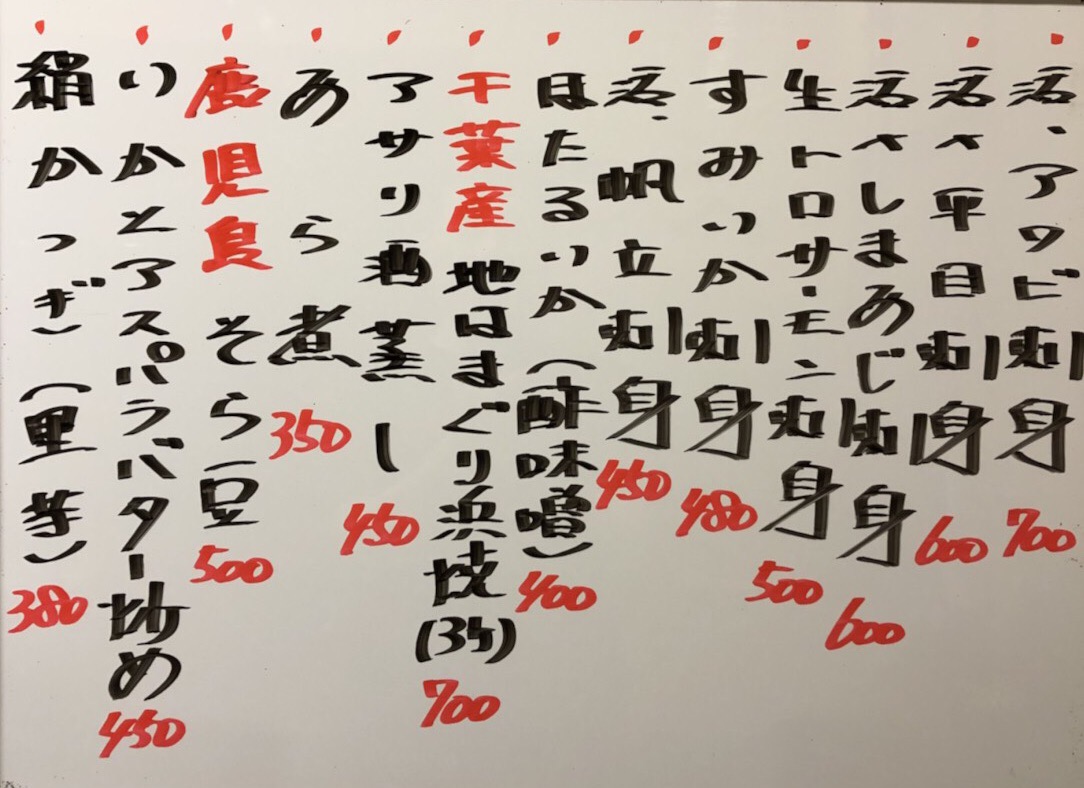 活、アワビ刺身 700
活、平目刺身 600
活、しまあじ刺身 600
生トロサーモン刺身 500
すみいか刺身 480
活、帆立刺身 450
ほたるいか（酢味噌） 400
千葉産 地はまぐり浜焼（3ケ） 700
アサリ酒蒸し 450
あら煮 350
鹿児島 そら豆 500
いかとアスパラバター炒め 450
絹かつぎ（里芋） 380